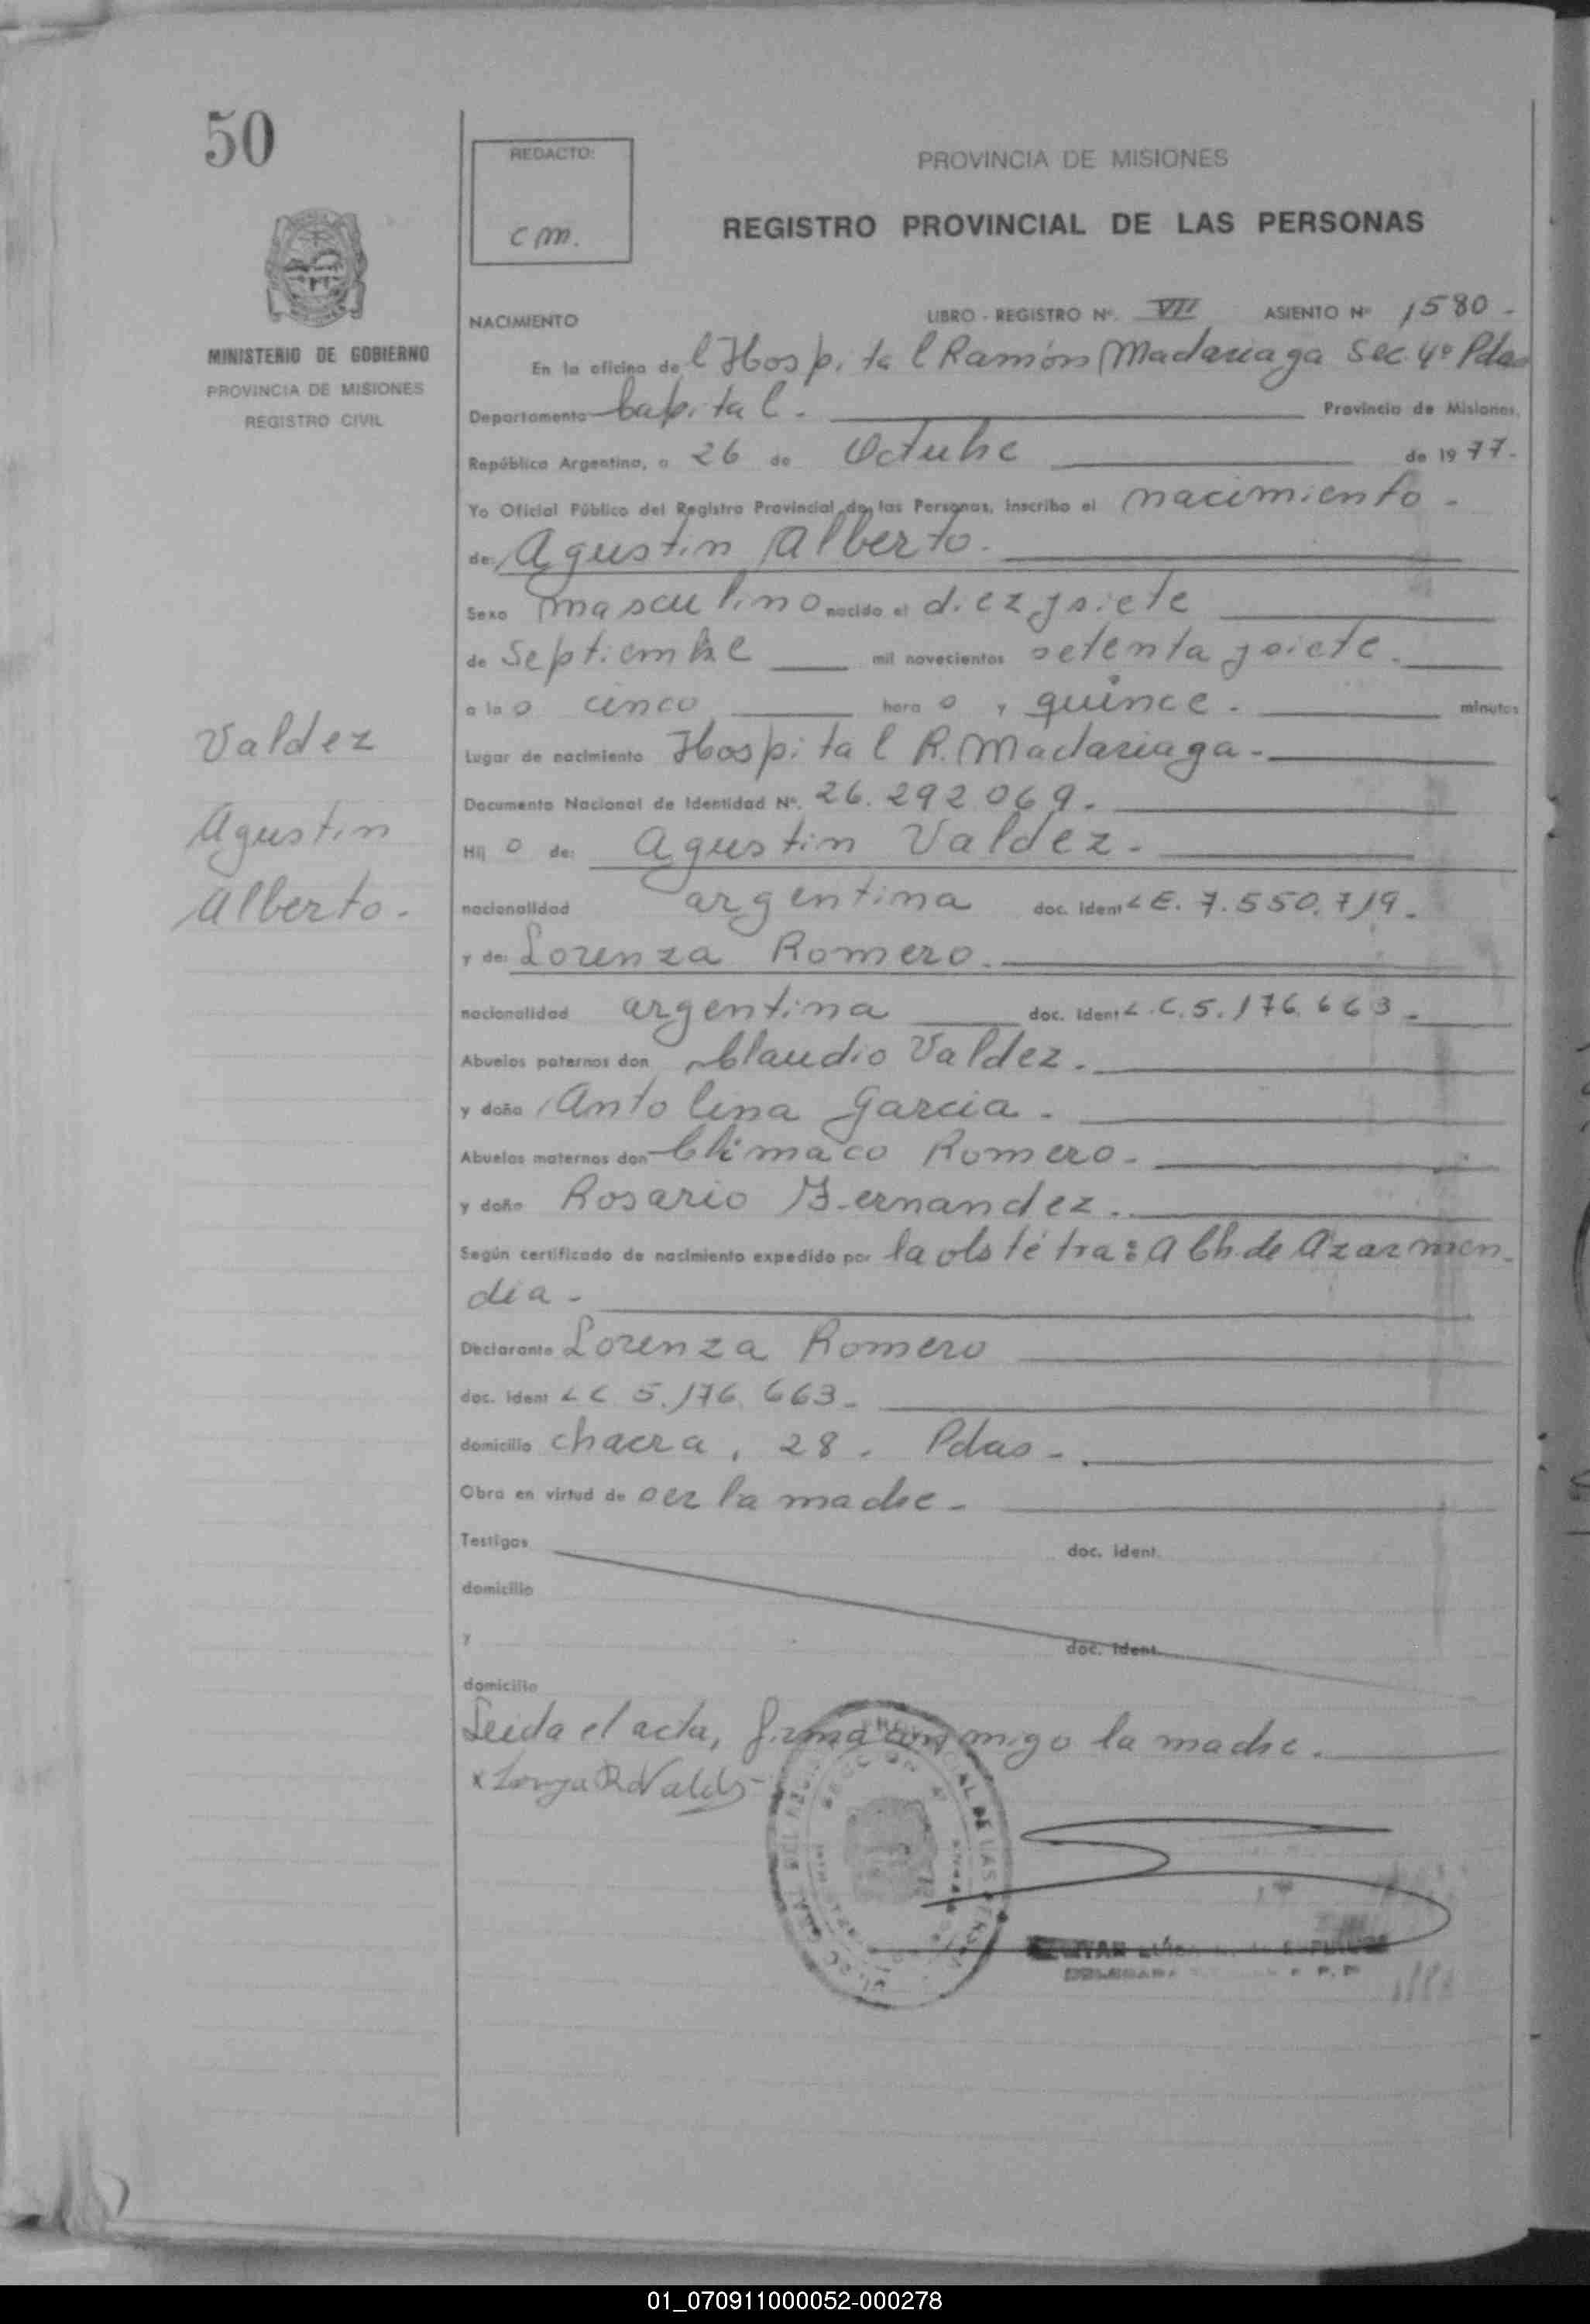 50
REDACTO:
cm.
PROVINCIA DE MISIONES
REGISTRO PROVINCIAL DE LAS PERSONAS
MINISTERIO DE GOBIERNO
PROVINCIA DE MISIONES
REGISTRO CIVIL
NACIMIENTO LIBRO - REGISTRO Nº. VII ASIENTO Nº 1580 -
En la oficina del Hospital Ramón Madariaga Sec. 4º Pdas
Departamento Capital. Provincia de Misiones,
República Argentina, a 26 de Octubre de 1977.-
Yo Oficial Público del Registro Provincial de las Personas, inscribo el nacimiento -
de: Agustin Alberto.
Sexo masculino nacido el diez y siete
de Septiembre mil novecientos setenta y siete.
a las cinco horas y quince. minutos
Lugar de nacimiento Hospital R. Madariaga -
Documento Nacional de Identidad Nº. 26.292.069.
Hijo de: Agustin Valdez.
nacionalidad argentina doc. ident L E. 7.550.719.
y de: Lorenza Romero.
nacionalidad argentina doc. ident L.C. 5.176.663.
Abuelos paternos don Claudio Valdez.
y doña Antolina Garcia.
Abuelos maternos don Climaco Romero.
y doña Rosario Fernandez.
Según certificado de nacimiento expedido por la obstétra: A Ch. de Azarmen-
dia -
Declarante Lorenza Romero
doc. ident L C 5.176.663.
domicilio chacra, 28. Pdas -
Obra en virtud de ser la madre -
Testigos doc. ident.
domicilio
y doc. ident.
domicilio
Leida el acta, firma conmigo la madre.
Valdez
Agustin
Alberto.
01_070911000052-000278